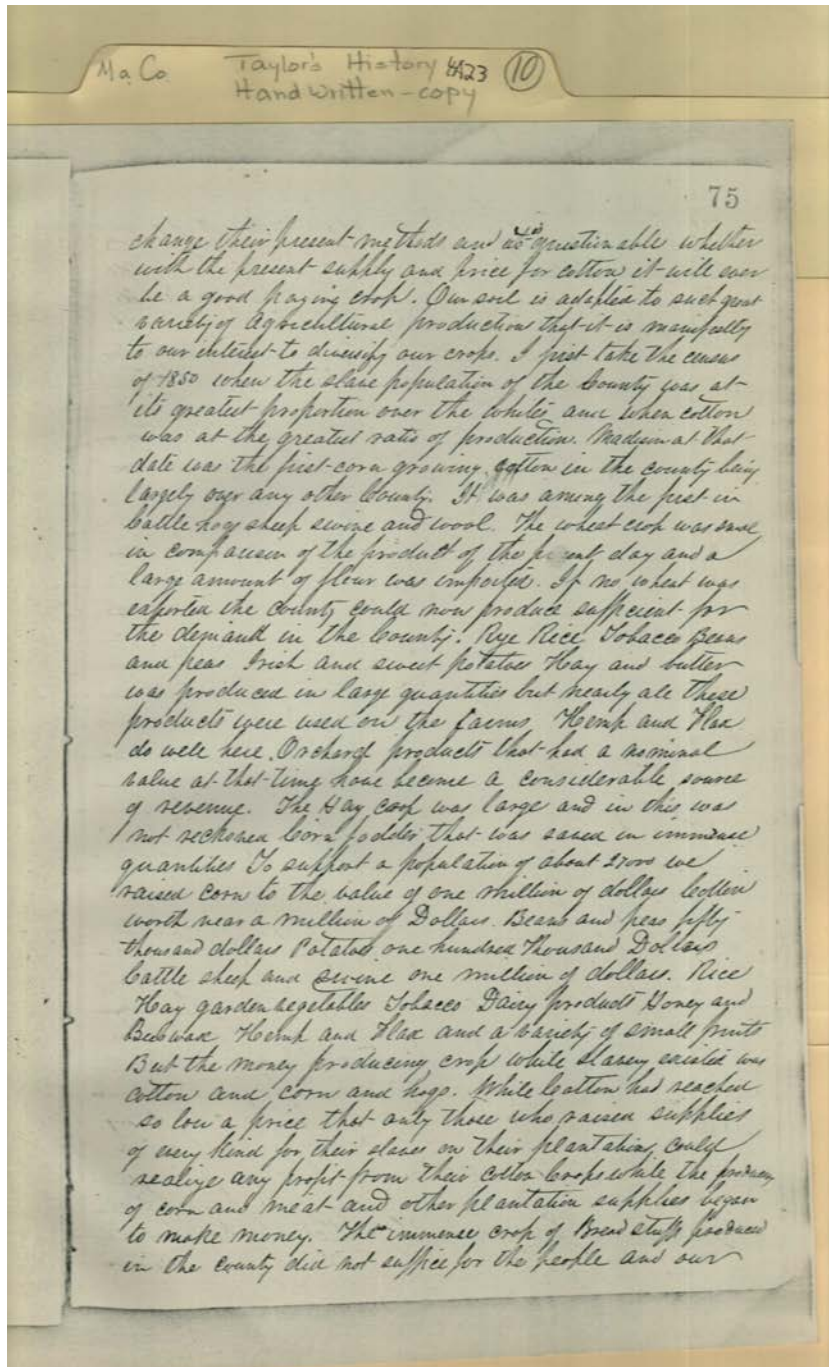 Ma. Co. Taylor's History 4A23 10
Handwritten-copy
75
change their present methods and questionable whether
with the present supply and price for cotton it will ever
be a good paying crop. Our soil is adapted to such great
variety of agricultural production that it is manifestly
to our interest to diversify our crops. I first take the census
of 1850 when the slave population of the County was at
its greatest proportion over the whites and when cotton
was at the greatest ratio of production. Madison at that
date was the first corn growing in the county being
largely over any other County. It was among the first in
Cattle hogs sheep swine and wool. The wheat crop was small
in comparison of the product of the present day and a
large amount of flour was imported. If no wheat was
exported the county could now produce sufficient for
the demand in the County. Rye Rice Tobacco Beans
and peas Irish and sweet potatoes Hay and butter
was produced in large quantities but nearly all these
products were used on the farms. Hemp and Flax
do well here. Orchard products that had a nominal
value at that time have become a considerable source
of revenue. The Hay crop was large and in this was
not reckoned Corn fodder that was saved in immense
quantities To support a population of about 27000 we
raised corn to the value of one million of dollars Cotton
worth near a million of Dollars. Beans and peas fifty
thousand dollars Potatoes one hundred Thousand Dollars
Cattle sheep and swine one million of dollars. Rice
Hay garden vegetables Tobacco Dairy products Honey and
Beeswax Hemp and Flax and a variety of small fruits
But the money producing crop while slavery existed was
cotton and corn and hogs. While Cotton had reached
so low a price that only those who raised supplies
of every kind for their slaves on their plantations could
realize any profit from their cotton Crops while the producers
of corn and meat and other plantation supplies began
to make money. The immense crop of Bread stuff produced
in the county did not suffice for the people and our